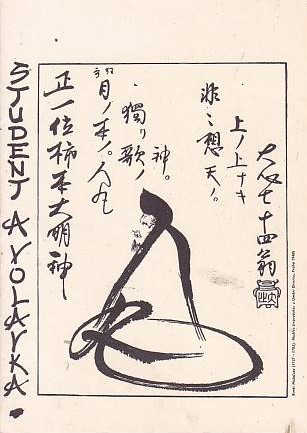 STUDENT A VOLAVKA
七十四翁
上ノ上ナキ
非々想天ノ
神。
獨り歌ノ
月ノ本ノ。人丸
正一位柿本大明神